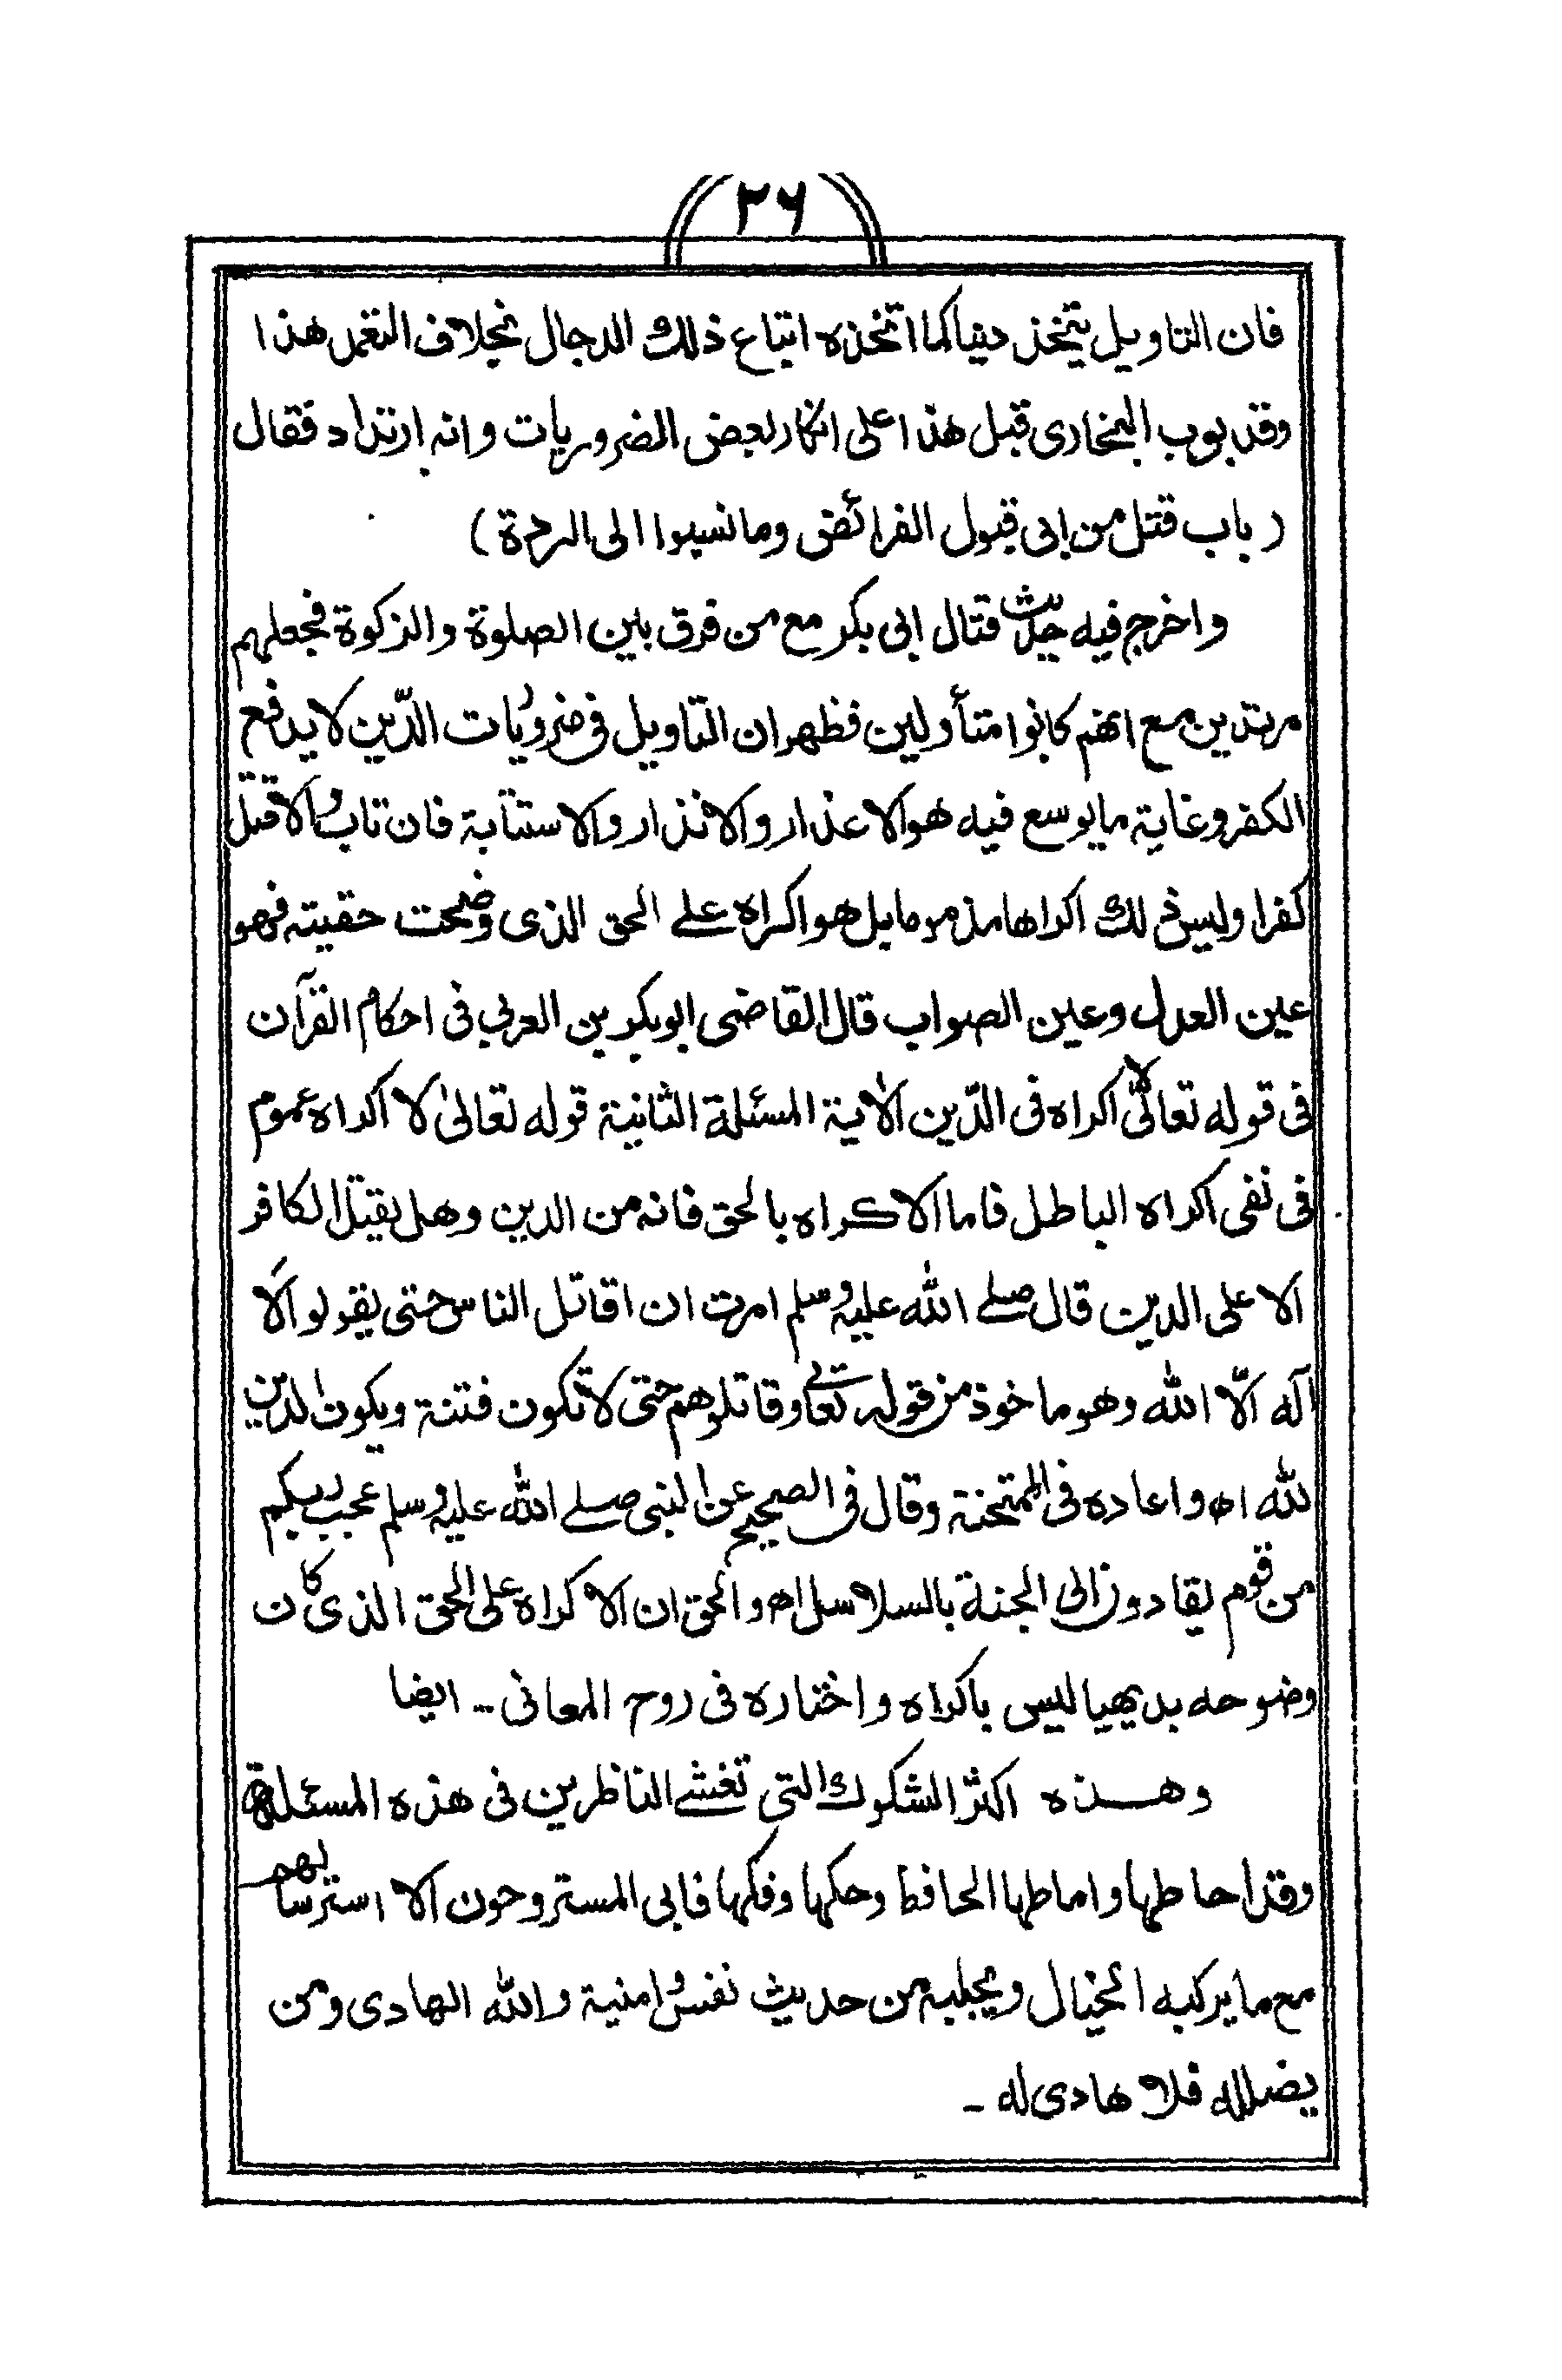 ۲۶
فان التاويل يتخذ دينا كما اتخذه اتباع ذلك الدجال بخلاف التغمد هذا
وقد بوب البخارى قبل هذا على انكار بعض الضروريات وانه ارتداد فقال
( باب قتل من ابى قبول الفرائض وما نسبوا الى الردة )
واخرج فيه حديث قتال ابى بكر مع من فرق بين الصلوة والزكوة فجعلهم
مرتدين مع انهم كانوا متأولين فظهر ان التاويل فى ضروريات الدّين لا يدفع
الكفر وغاية ما يوسع فيه هو الاعذار والانذار والاستتابة فان تاب والا قتل
كفرا وليس ذلك اكراها مذموما بل هو اكراه علے الحق الذى وضحت حقيته فهو
عين العدل وعين الصواب قال القاضى ابوبكر بن العربي فى احكام القرآن
فى قوله تعالىٰ لا اكراه فى الدّين الاٰية المسئلة الثانية قوله تعالىٰ لا اكراه عموم
فى نفى اكراه الباطل فاما الاكراه بالحق فانه من الدين وهل يقتل الكافر
الا على الدين قال صلے الله عليه وسلم امرت ان اقاتل الناس حتى يقولوا لا
اٰله الّا الله وهو ماخوذ من قوله تعالے وقاتلوهم حتى لا تكون فتنة ويكون الدين
لله اه واعاده فى الممتحنة وقال فى الصحيح عن النبى صلے الله عليه وسلم عجب ربكم
من قوم يقادون الى الجنة بالسلاسل اه والحق ان الاكراه على الحق الذى كان
وضوحه بديهيا ليس باكراه واختاره فى روح المعانى ـ ايضا
وهـــذه اكثر الشكوك التى تغشے الناظرين فى هذه المسئلة
وقد احاطها واماطها الحافظ وحكها وفكها فابى المستروحون الا استرسالهم
مع ما يركبه الخيال ويجلبه من حديث نفس وامنية والله الهادى ومن
يضلله فلا هادى له ـ